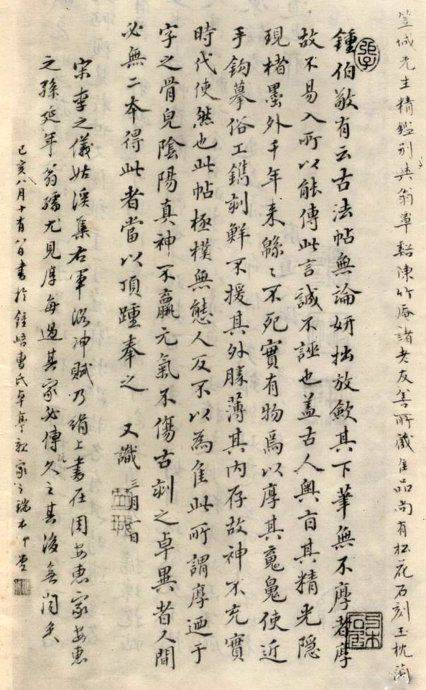 筀城先生精鑑別與翁草谿陳竹庵諸老友善所藏隹品尚有松花石刻玉枕蘭
鍾伯敬有云古法帖無論妍拙放斂其下筆無不厚者厚
故不易入所以能傳此言誠不誣也蓋古人奧旨其精光隱
現楮墨外千年來緜〻不死實有物焉以厚其䰟䰟使近
手鉤摹俗工鐫刻鮮不援其外朦薄其內存故神不充實
時代使然也此帖極樸無態人反不以為隹此所謂厚迺于
字之骨皃陰陽真神不羸元氣不傷古刻之卓異者人間
必無二本得此者當以頂踵奉之 又識 三月一日
宋李之儀姑溪集右軍洛神賦乃絹上書在周安惠家安惠
之孫延年翁孺尤見厚每過其家必傳久之其後無聞矣
己亥八月十有八日書於鐘㟃曹氏草亭親家之瑞木下堂